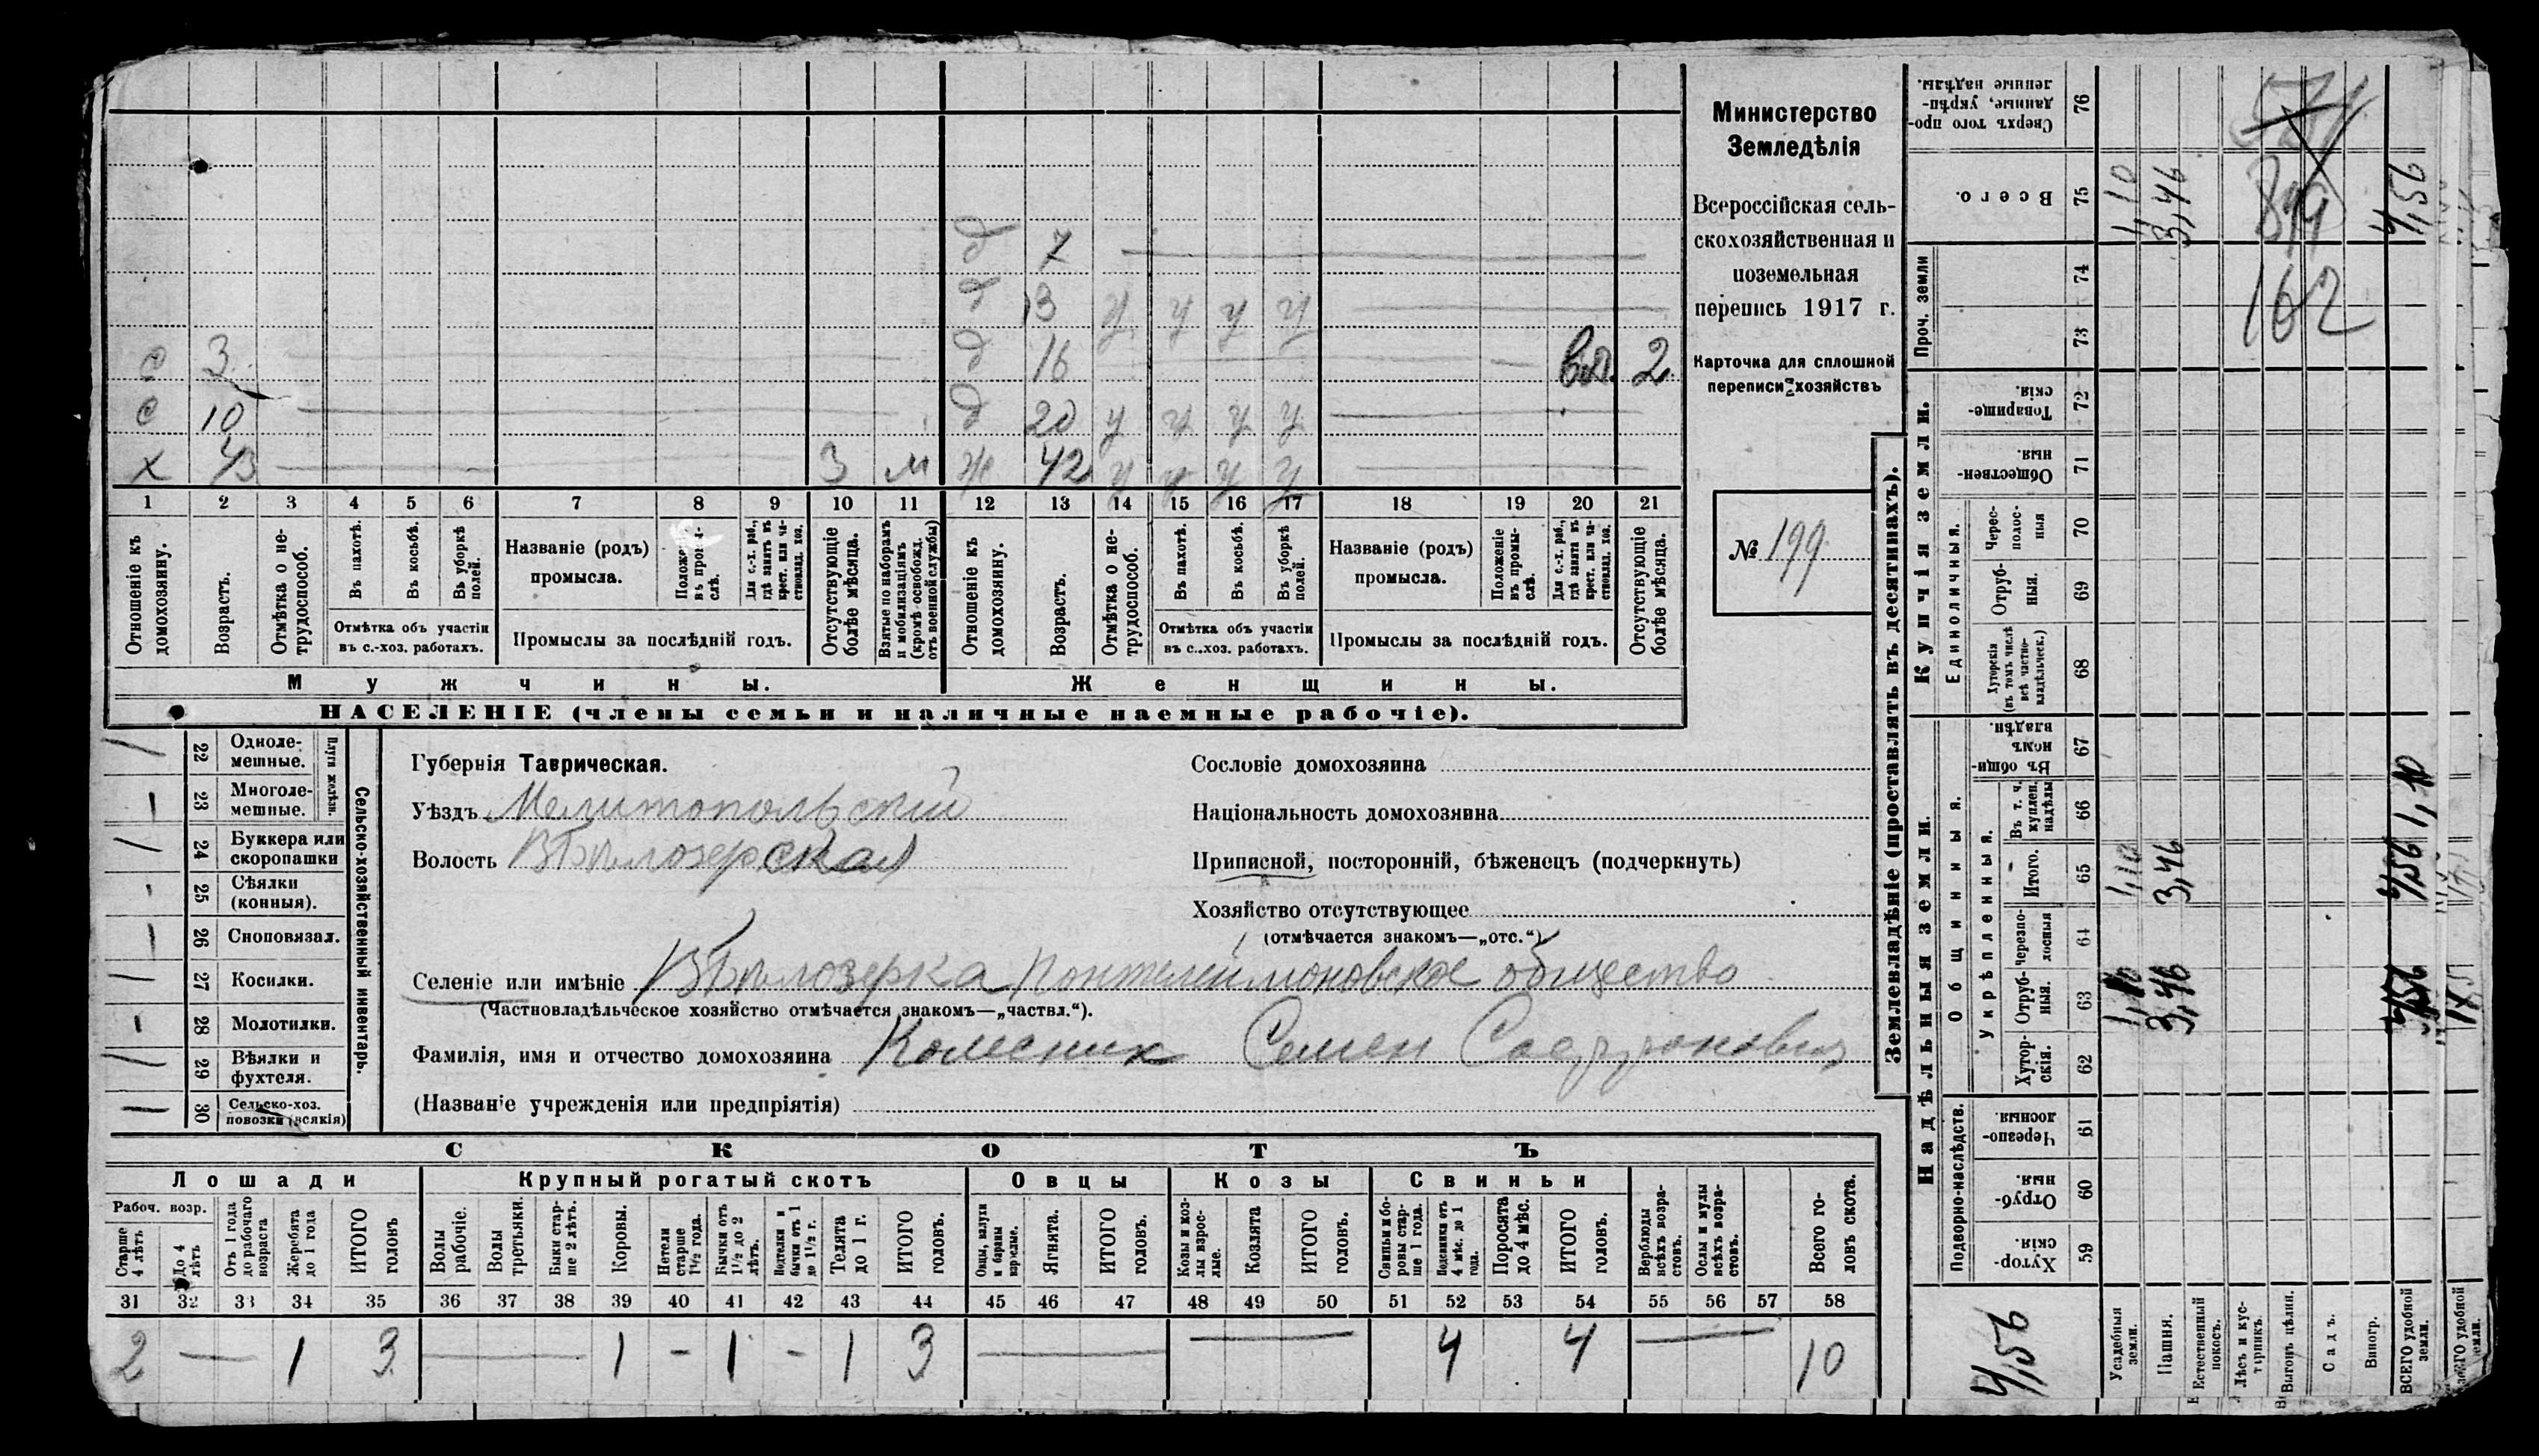 Министерство
Земледѣлія
Всероссійская сель-
скохозяйственная и
поземельная
перепись 1917 г.
Карточка для сплошной
переписи хозяйствъ
№ 199
д 7
д 13 у у у у
с 3 д 16 2
с 10 д 20 у у у у
х 43 3 м ж 42 у у у у
1 2 3 4 5 6 7 8 9 10 11 12 13 14 15 16 17 18 19 20 21
Отношеніе къ домохозяину.
Возрастъ.
Отмѣтка о не-трудоспособ.
Въ пахотѣ.
Въ косьбѣ.
Въ уборкѣ полей.
Отмѣтка объ участіи
въ с.-хоз. работахъ.
Названіе (родъ)
промысла.
Положеніе въ промы-слѣ.
Для с.-х. раб., гдѣ занятъ въ крест. или ча-стновлад. хоз.
Промыслы за послѣдній годъ.
Отсутствующіе болѣе мѣсяца.
Взятые по наборамъ и мобилизаціямъ (кромѣ освобожд. отъ военной службы)
Отношеніе къ домохозяину.
Возрастъ.
Отмѣтка о не-трудоспособ.
Въ пахотѣ.
Въ косьбѣ.
Въ уборкѣ полей.
Отмѣтка объ участіи
въ с.-хоз. работахъ.
Названіе (родъ)
промысла.
Положеніе въ промы-слѣ.
Для с.-х. раб., гдѣ занята въ крест. или ча-стновлад. хоз.
Промыслы за послѣдній годъ.
Отсутствующіе болѣе мѣсяца.
Мужчины. Женщины.
НАСЕЛЕНІЕ (члены семьи и наличные наемные рабочіе).
Сельско-хозяйственный инвентарь.
Плуги желѣзн.
22 Одноле-мешные.
23 Многоле-мешные.
24 Буккера или скоропашки
25 Сѣялки (конныя).
26 Сноповязал.
27 Косилки.
28 Молотилки.
29 Вѣялки и фухтеля.
30 Сельско-хоз. повозки (всякія)
Губернія Таврическая.
Уѣздъ Мелитопольскій
Волость В Бѣлозерская
Сословіе домохозяина
Національность домохозяина
Приписной, посторонній, бѣженецъ (подчеркнуть)
Хозяйство отсутствующее
(отмѣчается знакомъ—„отс.“)
Селеніе или имѣніе В Бѣлозерка Понтелеймоновское общество
(Частновладѣльческое хозяйство отмѣчается знакомъ—„частвл.“).
Фамилія, имя и отчество домохозяина Колесник Семен Сафронович
(Названіе учрежденія или предпріятія)
СКОТЪ
Лошади Крупный рогатый скотъ Овцы Козы Свиньи
Рабоч. возр.
Старше 4 лѣтъ
До 4 лѣтъ
Отъ 1 года до рабочаго возраста
Жеребята до 1 года
ИТОГО головъ
Волы рабочіе.
Волы третьяки.
Быки стар-ше 2 лѣтъ.
Коровы.
Нетели старше 1½ года.
Бычки отъ 1½ до 2 лѣтъ.
Подтелки и бычки отъ 1 до 1½ г.
Телята до 1 г.
ИТОГО головъ.
Овцы, валухи и бараны взрослые.
Ягнята.
ИТОГО головъ.
Козы и коз-лы взрос-лые.
Козлята
ИТОГО головъ.
Свиньи и бо-ровы стар-ше 1 года.
Подсвинки отъ 4 мѣс. до 1 года.
Поросята до 4 мѣс.
ИТОГО головъ.
Верблюды всѣхъ возра-стовъ.
Ослы и мулы всѣхъ возра-стовъ.
Всего го-ловъ скота.
31 32 33 34 35 36 37 38 39 40 41 42 43 44 45 46 47 48 49 50 51 52 53 54 55 56 57 58
2 — 1 3 — 1 - 1 - 1 3 — — 4 4 — 10
Землевладѣніе (проставлять въ десятинахъ).
Надѣльныя земли.
Купчія земли.
Проч. земли
Подворно-наслѣдств.
Общинныя.
Укрѣпленныя.
Единоличныя.
Хутор-скія. 59
Отруб-ныя. 60
Черезпо-лосныя. 61
Хутор-скія. 62
Отруб-ныя. 63
Черезпо-лосныя 64
Итого. 65
Въ т. ч. куплен. надѣлы 66
Въ общин-номъ владѣн. 67
Хуторскія (въ томъ числѣ всѣ частно-владѣльческ.) 68
Отруб-ныя. 69
Черес-полос-ныя 70
Обществен-ныя 71
Товарище-скія. 72
73
74
Всего. 75
Сверхъ того про-данные, укрѣп-ленные надѣлы. 76
Усадебныя земли. 1,10 1,10
Пашня. 3,46 3,46 3,46
Естественный покосъ.
Лѣсъ и кус-тарникъ.
Выгонъ цѣлин.
Садъ.
Виногр.
ВСЕГО удобной земли. 4,56 4,56 4,56
4,56
162